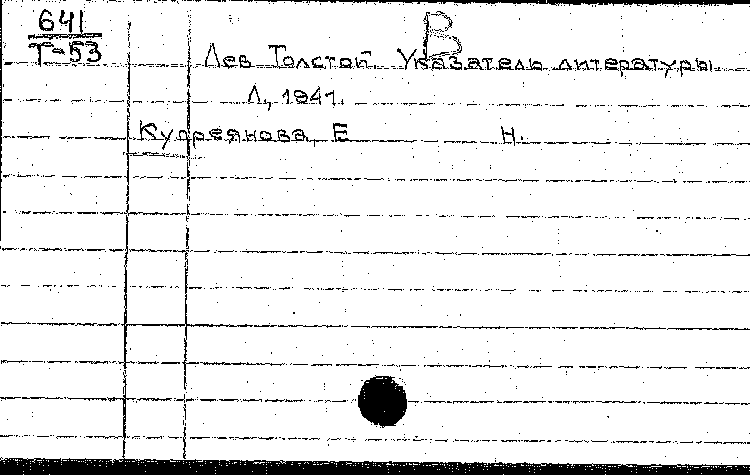 641
Т-53
В
Лев Толстой. Указатель литературы.
Л., 1941.
Купреянова, Е Н.